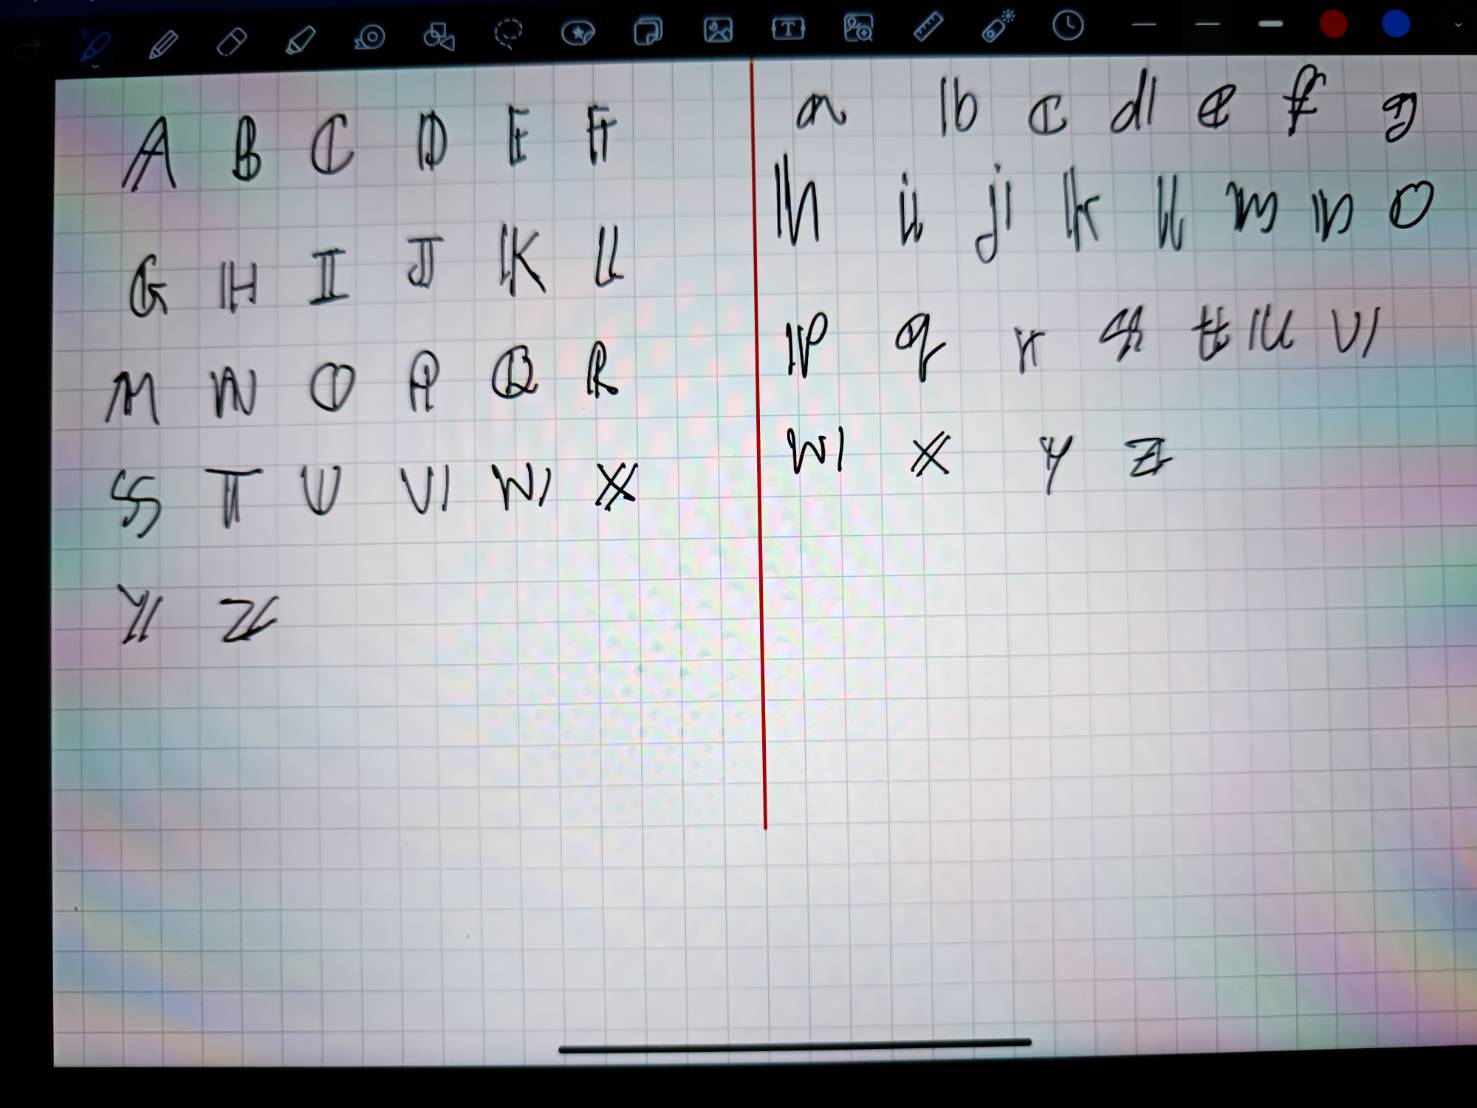 𝔸 𝔹 ℂ 𝔻 𝔼 𝔽
𝔾 ℍ 𝕀 𝕁 𝕂 𝕃
𝕄 ℕ 𝕆 ℙ ℚ ℝ
𝕊 𝕋 𝕌 𝕍 𝕎 𝕏
𝕐 ℤ
𝕒 𝕓 𝕔 𝕕 𝕖 𝕗 𝕘
𝕙 𝕚 𝕛 𝕜 𝕝 𝕞 𝕟 𝕠
𝕡 𝕢 𝕣 𝕤 𝕥 𝕦 𝕧
𝕨 𝕩 𝕪 𝕫